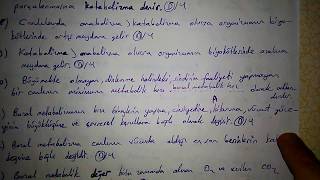 parçalanmasına katabolizma denir. D/Y
Canlılarda anabolizma > katabolizma olursa organizmanın biyo-
kütlesinde artış meydana gelir D/Y
Katabolizma > anabolizma olursa organizmanın biyokütlesinde azalma
meydana gelir. D/Y
Büyümekte olmayan, dinlenme halindeki, sindirim faaliyeti yapmayan
bir canlının minimum metabolik hızı bazal metabolik hız olarak
Bazal metabolizmanın hızı bireylerin yaşına, cinsiyetine, vücut
büyüklüğüne ve çevresel koşullara bağlı olarak değişir D/Y
Bazal metabolizma canlının vücuda aldığı besinlerin
değişime bağlı değildir D/Y
Bazal metabolik değer birim zamanda alınan O₂ ve verilen CO₂